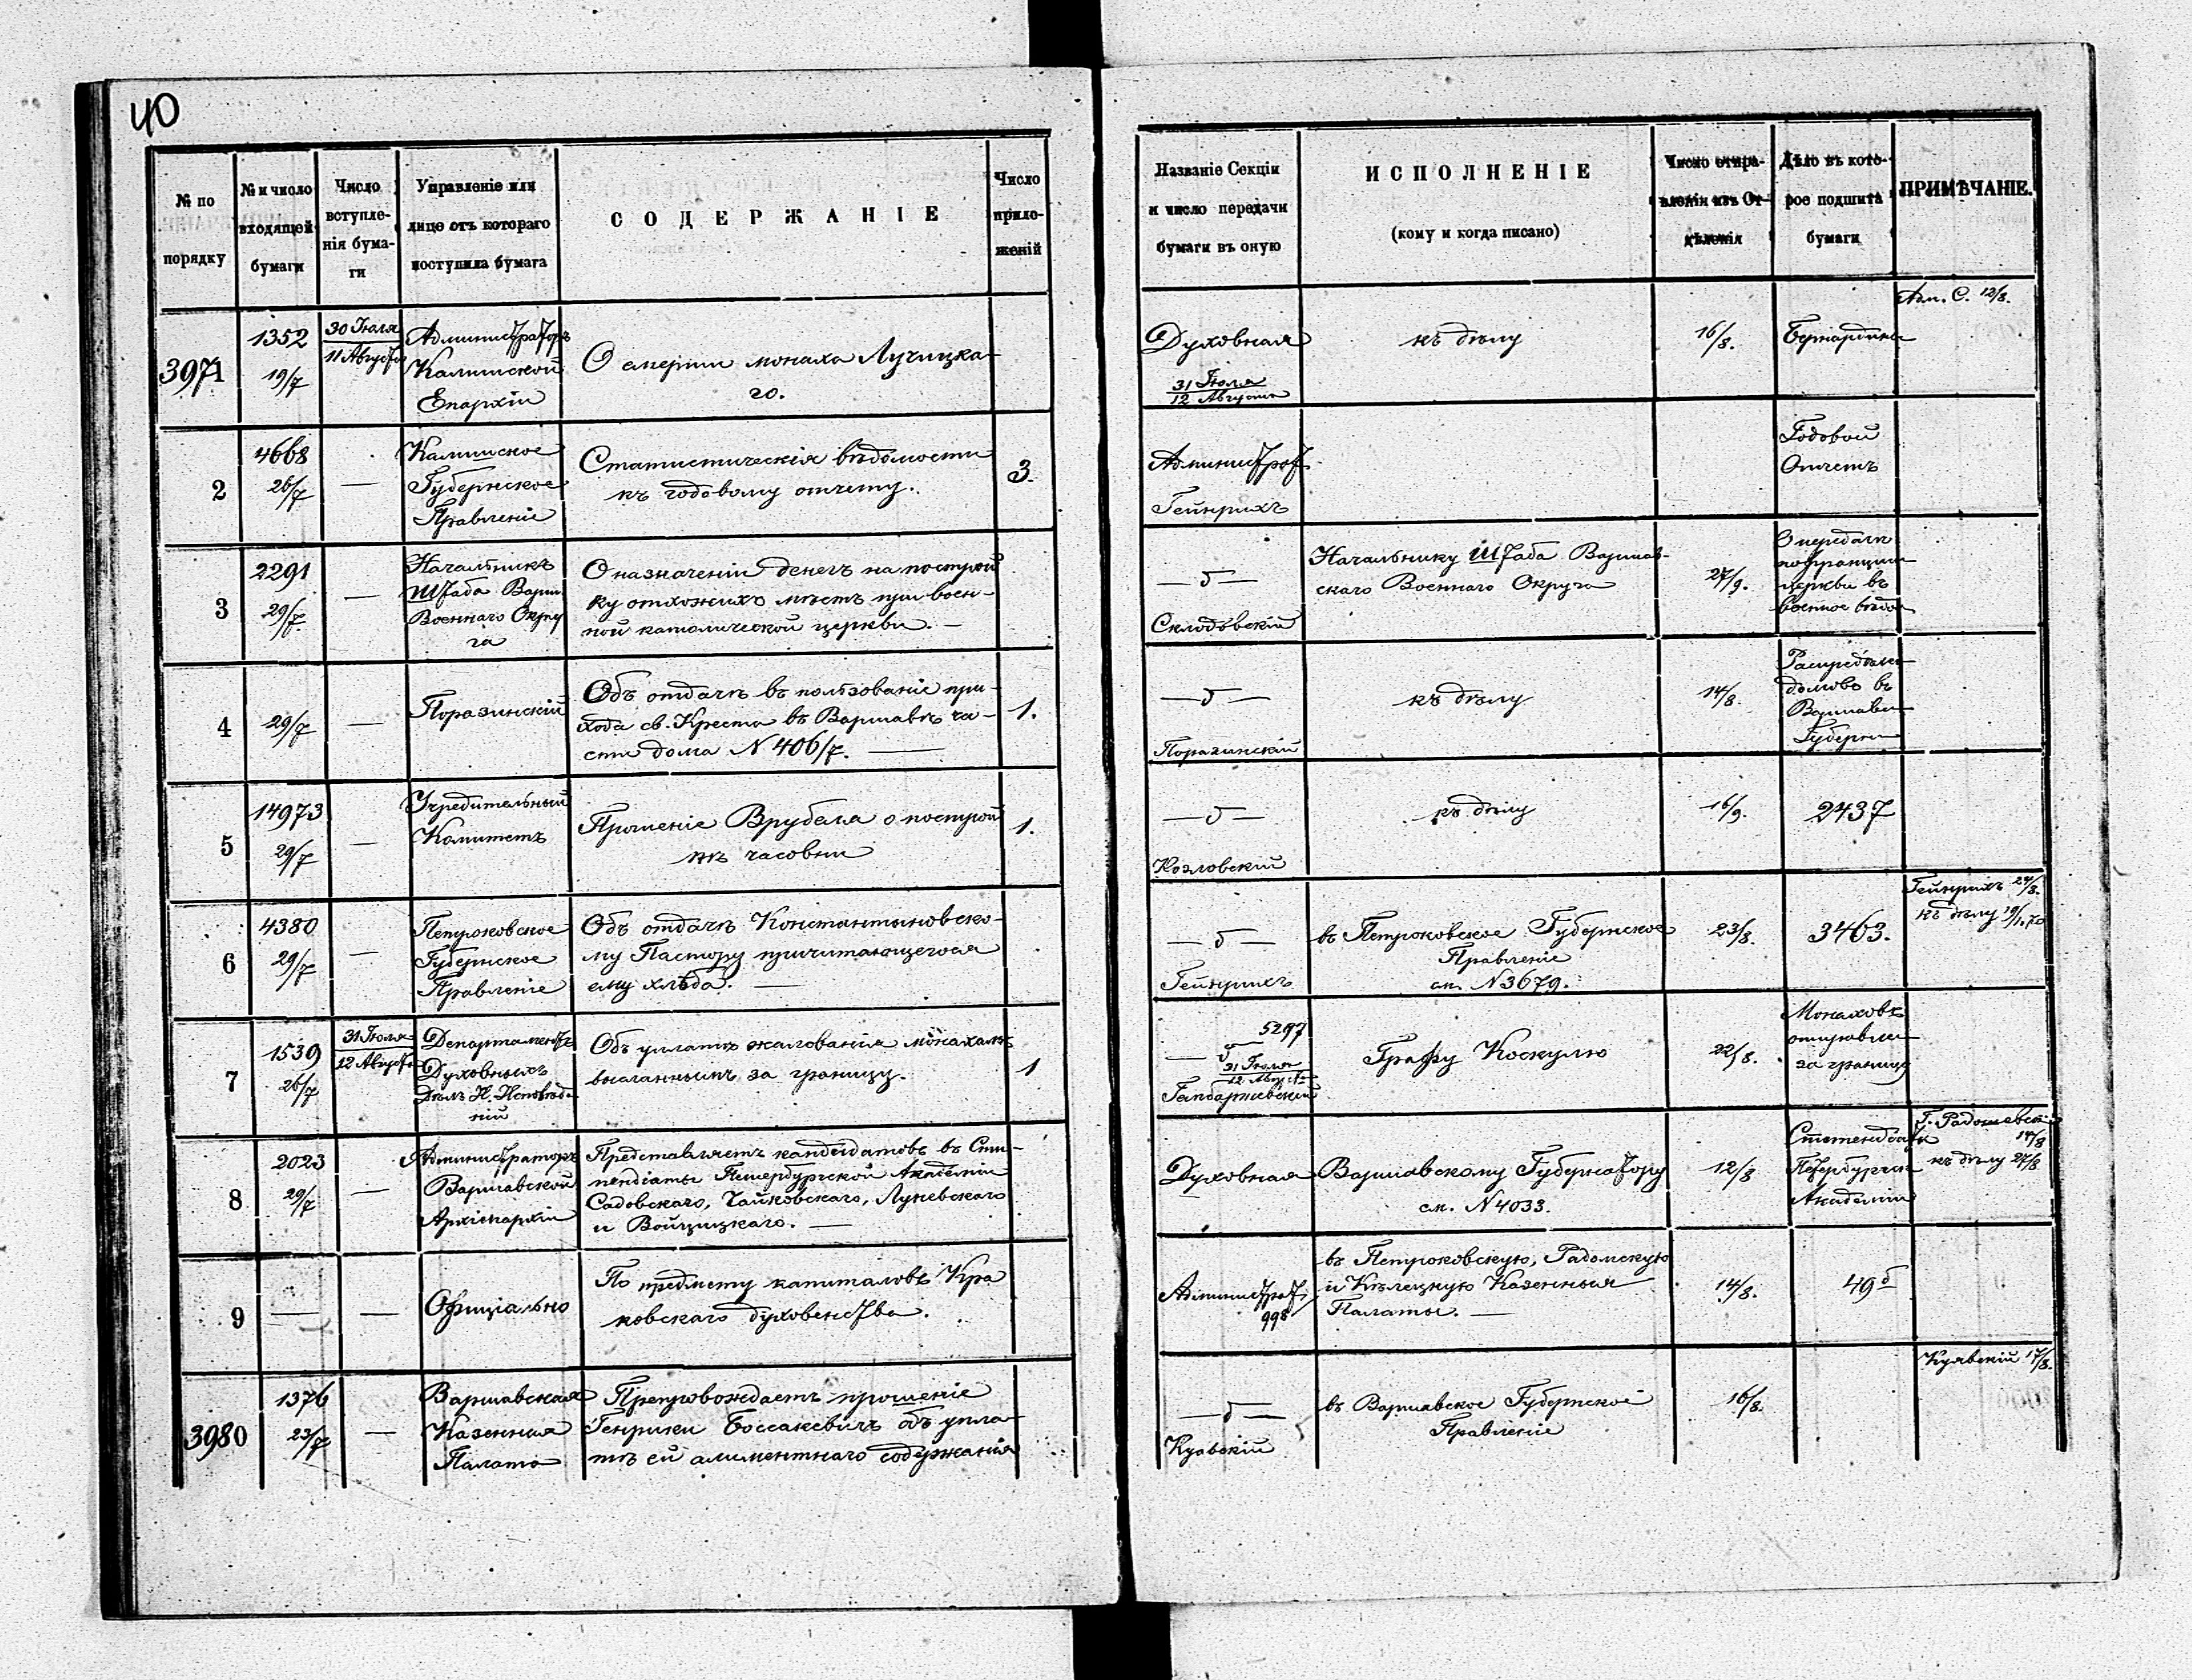 40
№ по порядку
№ и число входящей бумаги
Число вступле-
нія бума-
ги
Управленіе или
лице отъ котораго
поступила бумага
СОДЕРЖАНІЕ
Число
прило-
женій
Названіе Секціи
и число передачи
бумаги въ оную
ИСПОЛНЕНІЕ
(кому и когда писано)
Число отпра-
вленія изъ От-
дѣленія
Дѣло въ кото-
рое подшита
бумаги
ПРИМѢЧАНІЕ.
3971
1352
19/7
30 Іюля
11 Августа
Администраторъ
Калишской
Епархіи
О смерти монаха Лучицка-
го.
Духовная
31 Іюля
12 Августа
къ дѣлу
16/8.
Бернардины
Адм. С. 12/8.
2
4668
26/7
—
Калишское
Губернское
Правленіе
Статистическія вѣдомости
къ годовому отчету.
3.
Администрат.
Гейнрихъ
Годовой
Отчетъ
3
2291
29/7
—
Начальникъ
Штаба Варш.
Военнаго Окру
га
О назначеніи денегъ на построй
ку отхожихъ мѣстъ при воен-
ной католической церкви. —
— " —
Склодовскій
Начальнику Штаба Варшав-
скаго Военнаго Округа
27/9.
О передачѣ
церкви въ
военное вѣдом
4
29/7
—
Поразинскій
Объ отдачѣ въ пользованіе при-
хода св. Креста въ Варшавѣ ча-
сти дома N 406/7. —
1.
— " —
Поразинскій
къ дѣлу
14/8.
домовъ въ
Варшавск
Губерніи
5
14973
29/7
—
Учредительный
Комитетъ
Прошеніе Врубеля о построй
кѣ часовни
1.
— " —
Козловскій
къ дѣлу
16/9.
2437
6
4380
29/7
—
Петроковское
Губернское
Правленіе
Объ отдачѣ Константиновско-
му Пастору причитающегося
ему хлѣба. —
— " —
Гейнрихъ
въ Петроковское Губернское
Правленіе
см. N 3679.
23/8.
3463.
Гейнрихъ 24/8.
къ дѣлу 19/1.70
7
1539
26/7
31 Іюля
12 Августа
Департаментъ
Духовныхъ
Дѣлъ И. Исповѣда-
ній
Объ уплатѣ жалованія монахамъ
высланнымъ за границу.
1
5297
— " —
31 Іюля
12 Авгус.
Графу Коскулю
22/8.
Монаховъ
отправлен
за границу
8
2023
29/7
—
Администраторъ
Варшавской
Архіепархіи
Представляетъ кандидатовъ въ Сти-
пендіаты Петербургской Академіи
Садовскаго, Чайковскаго, Луневскаго
и Войцицкаго. —
Духовная
Варшавскому Губернатору
см. N 4033.
12/8
Петербургск
Академіи
Г. Радошевскі
14/8
къ дѣлу 27/8
9
—
—
Офиціально
По предмету капиталовъ Кра
ковскаго духовенства.
Администрат.
998
въ Петроковскую, Радомскую
и Кѣлецкую Казенныя
Палаты. —
14/8.
49б
3980
1376
23/7
—
Варшавская
Казенная
Палата
Препровождаетъ прошеніе
Генрики Боссакевичъ объ упла-
тѣ ей алиментнаго содержанія
— " —
Куявскій
въ Варшавское Губернское
Правленіе
16/8.
Куявскій 17/8.